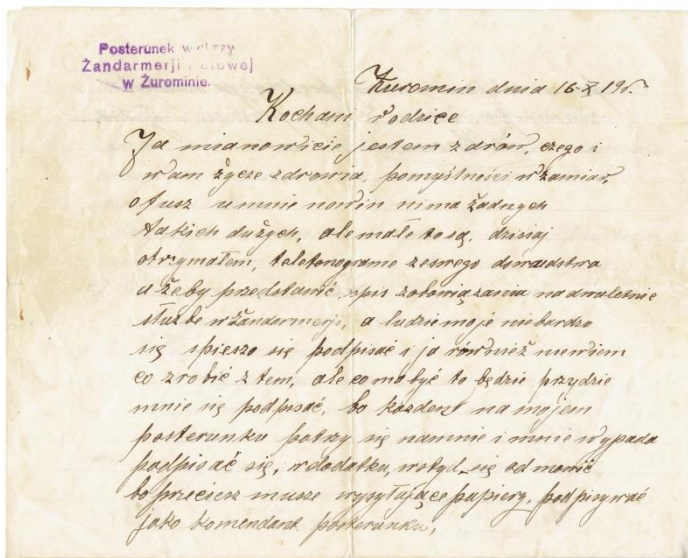 Posterunek
Żandarmerji
w Żurominie.
Żuromin dnia 16-X 19
Kochani rodzice
Ja mianowicie jestem zdrów, czego i
wam życze zdrowia, pomyślności wzamiar,
otusz umnie nowin nima żadnych
takich dużych, ale małe to są, dzisiaj
otrzymałem, telefonograme zeswego
użeby przedstawić, spis zobowiązania na dwuletnie
służbe w żandarmerji, a ludzie moje niebardzo
się spieszo się podpisać i ja również niewiem
co zrobić z tem, ale co ma być to będzie przydzie
mnie się podpisać, bo każden na mojem
posterunku patrzy się namnie i mnie wypada
podpisać się, wdodatku, wstyd się odmówić
bo przeciesz musze wysyłające papiery, podpisywać
jako komendant posterunku,